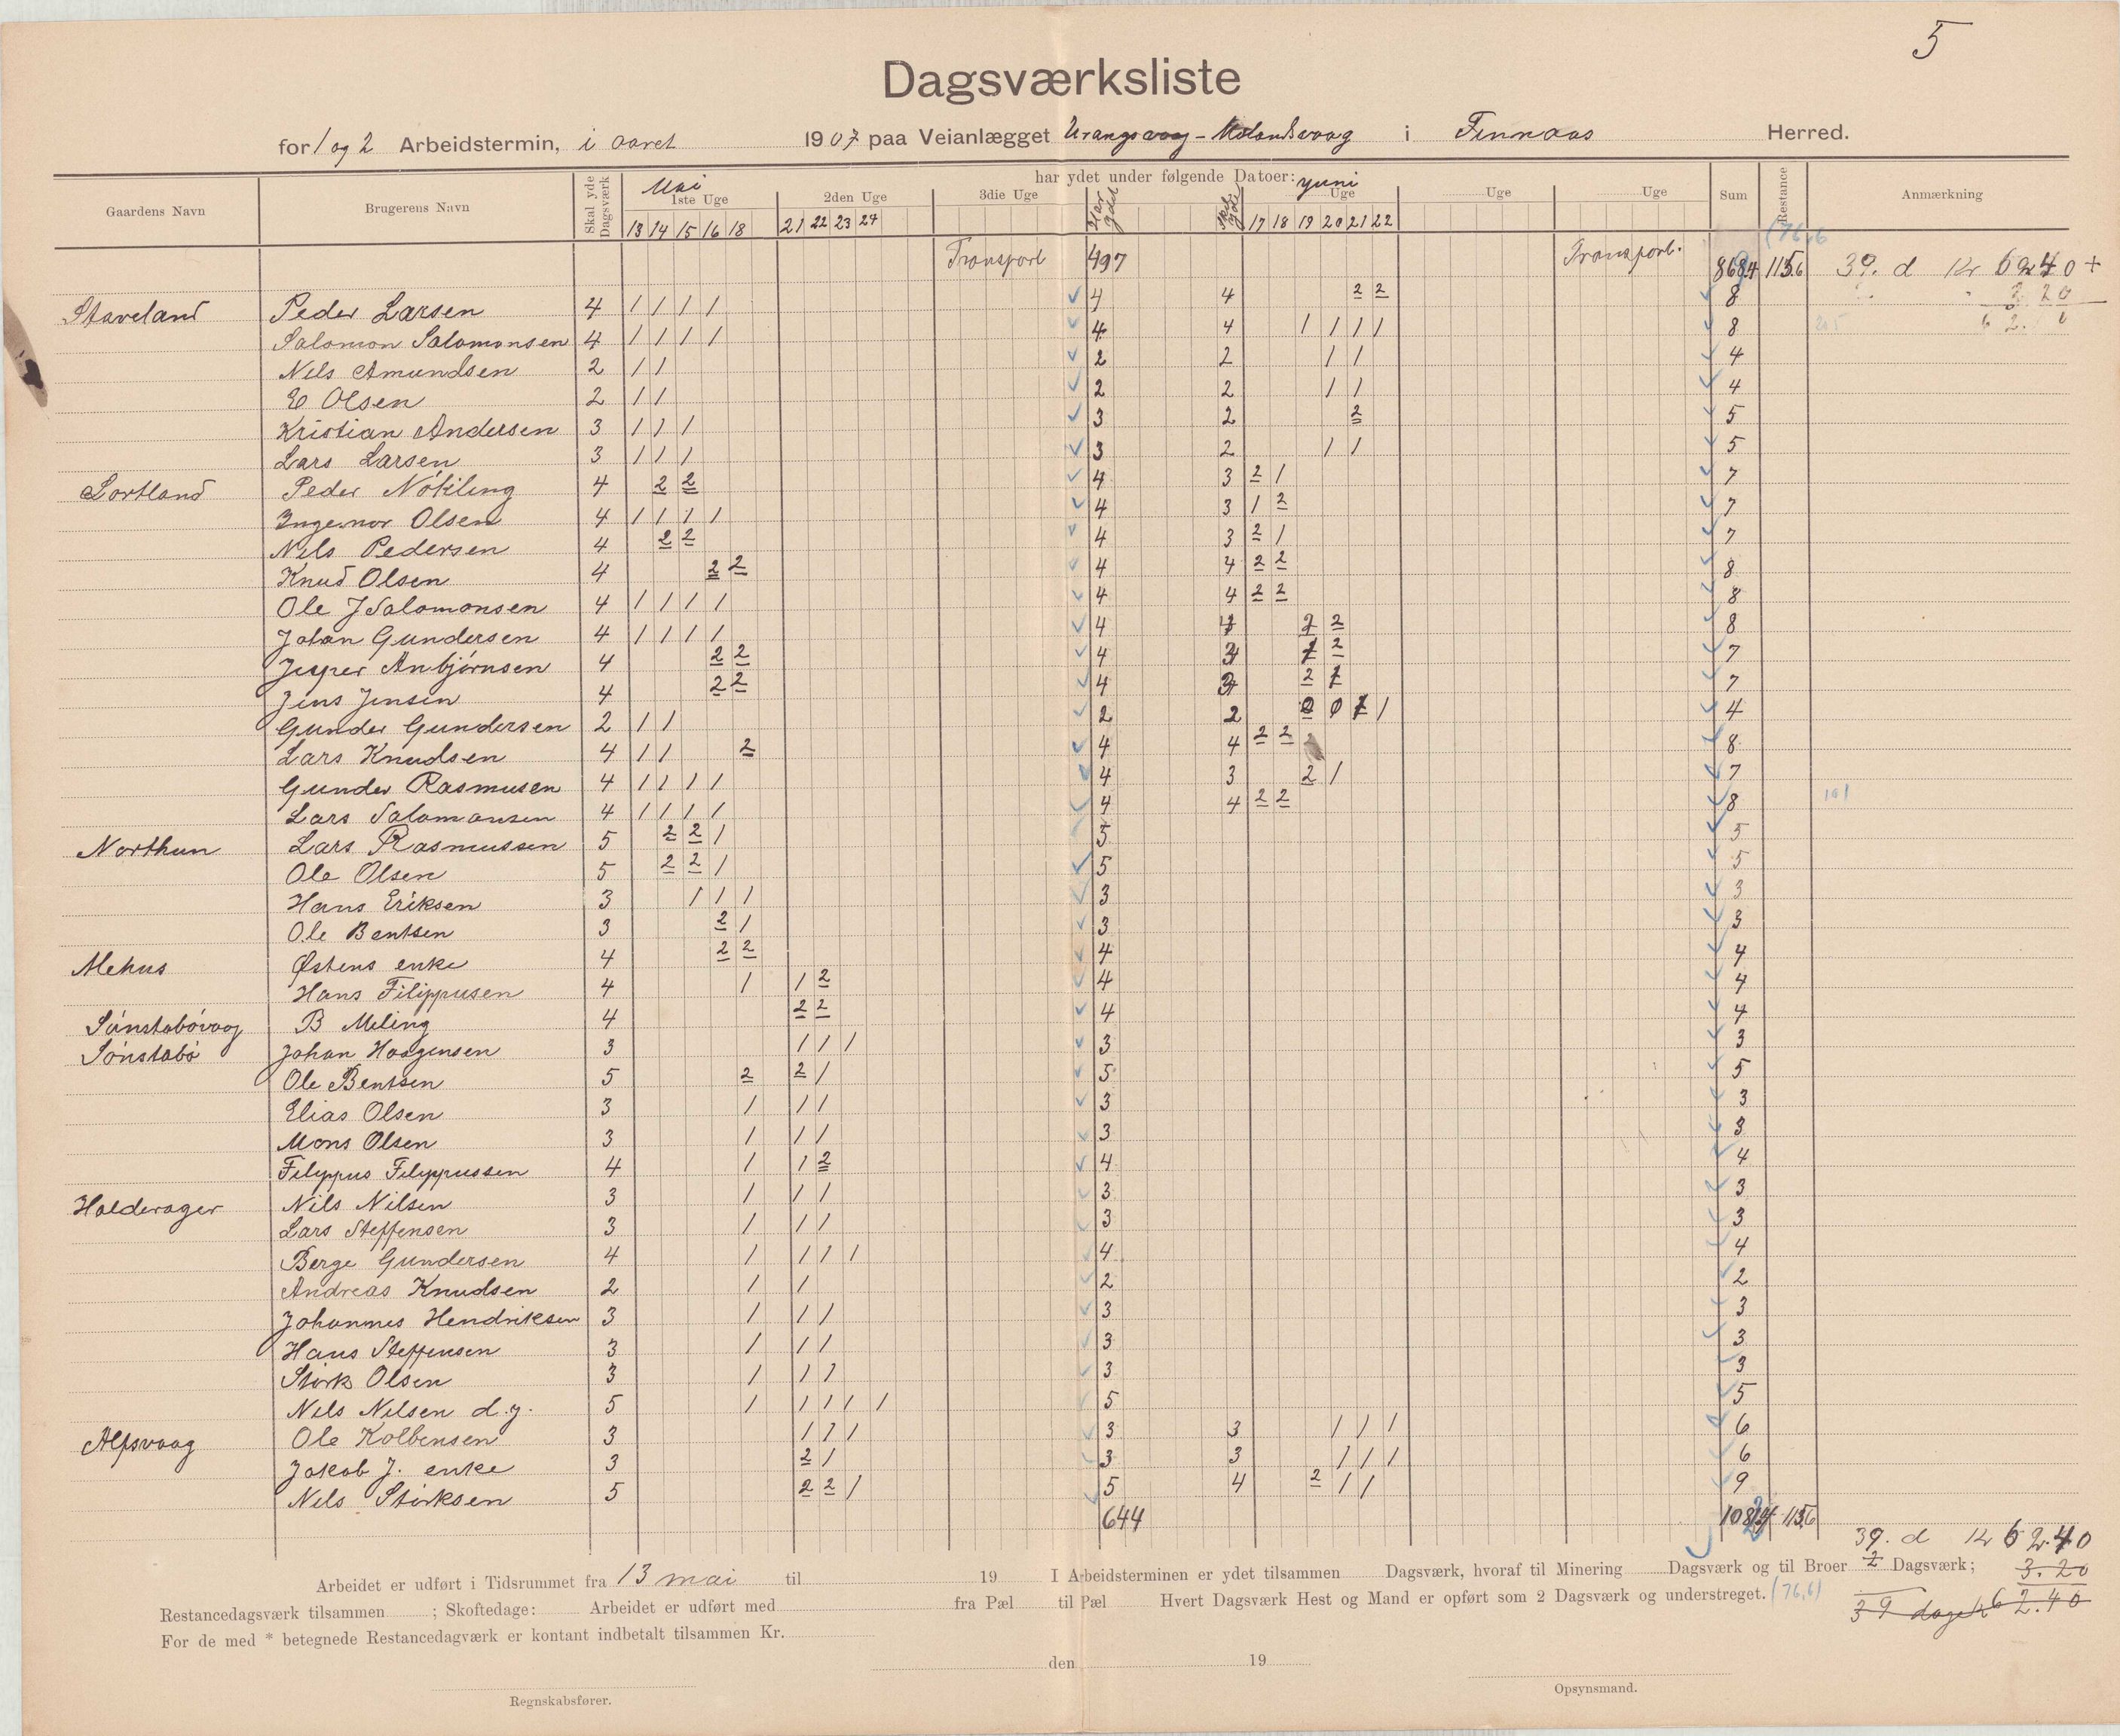 5
Dagsværksliste
for 1 og 2 Arbeidstermin, i aaret 1907 paa Veianlægget Urangsvaag - Mælandsvaag i Finnaas Herred.
Gaardens Navn Brugerens Navn Skal yde Dagsværk har ydet under følgende Datoer: Sum Restance Anmærkning
Mai 1ste Uge 2den Uge 3die Uge Har ydet Skal yde Juni Uge Uge Uge
13 14 15 16 18 21 22 23 24 17 18 19 20 21 22
Transport 497 Transport. 115.6 39. d Kr 62 40 +
Staveland Peder Larsen 4 1 1 1 1 4 4 2 2 8 3 20
Salomon Salomonsen 4 1 1 1 1 4 4 1 1 1 1 8
Nils Amundsen 2 1 1 2 2 1 1 4
E Olsen 2 1 1 2 2 1 1 4
Kristian Andersen 3 1 1 1 3 2 2 5
Lars Larsen 3 1 1 1 3 2 1 1 5
Sortland Peder Nökling 4 2 2 4 3 2 1 7
Ingemor Olsen 4 1 1 1 1 4 3 1 2 7
Nils Pedersen 4 2 2 4 3 2 1 7
Knud Olsen 4 2 2 4 4 2 2 8
Ole J Salomonsen 4 1 1 1 1 4 4 2 2 8
Johan Gundersen 4 1 1 1 1 4 4 2 2 8
Jesper Anbjörnsen 4 2 2 4 3 1 2 7
Jens Jensen 4 2 2 4 3 2 1 7
Gunder Gundersen 2 1 1 2 2 0 0 1 1 4
Lars Knudsen 4 1 1 2 4 4 2 2 8
Gunder Rasmusen 4 1 1 1 1 4 3 2 1 7
Lars Salomonsen 4 1 1 1 1 4 4 2 2 8 101
Northun Lars Rasmussen 5 2 2 1 5 5
Ole Olsen 5 2 2 1 5 5
Hans Eriksen 3 1 1 1 3 3
Ole Bentsen 3 2 1 3 3
Mehus Østens enke 4 2 2 4 4
Hans Filippusen 4 1 1 2 4 4
Sönstabövaag B Meling 4 2 2 4 4
Sönstabö Johan Haagensen 3 1 1 1 3 3
Ole Bentsen 5 2 2 1 5 5
Elias Olsen 3 1 1 1 3 3
Mons Olsen 3 1 1 1 3 3
Filippus Filippussen 4 1 1 2 4 4
Halderager Nils Nilsen 3 1 1 1 3 3
Lars Steffensen 3 1 1 1 3 3
Berge Gundersen 4 1 1 1 1 4 4
Andreas Knudsen 2 1 1 2 2
Johannes Hendriksen 3 1 1 1 3 3
Hans Steffensen 3 1 1 1 3 3
Störk Olsen 3 1 1 1 3 3
Nils Nilsen d.y. 5 1 1 1 1 1 5 5
Alfsvaag Ole Kolbensen 3 1 1 1 3 3 1 1 1 6
Jakob J. enke 3 2 1 3 3 1 1 1 6
Nils Störksen 5 2 2 1 5 4 2 1 1 9
644 115.6
39. d Kr 62.40
Arbeidet er udført i Tidsrummet fra 13 mai til 19 I Arbeidsterminen er ydet tilsammen Dagsværk, hvoraf til Minering Dagsværk og til Broer 2 Dagsværk; 3.20
Restancedagsværk tilsammen ; Skoftedage: Arbeidet er udført med fra Pæl til Pæl Hvert Dagsværk Hest og Mand er opført som 2 Dagsværk og understreget. (76,6) 39 dage Kr 62.40
For de med * betegnede Restancedagværk er kontant indbetalt tilsammen Kr.
den 19
Regnskabsfører. Opsynsmand.